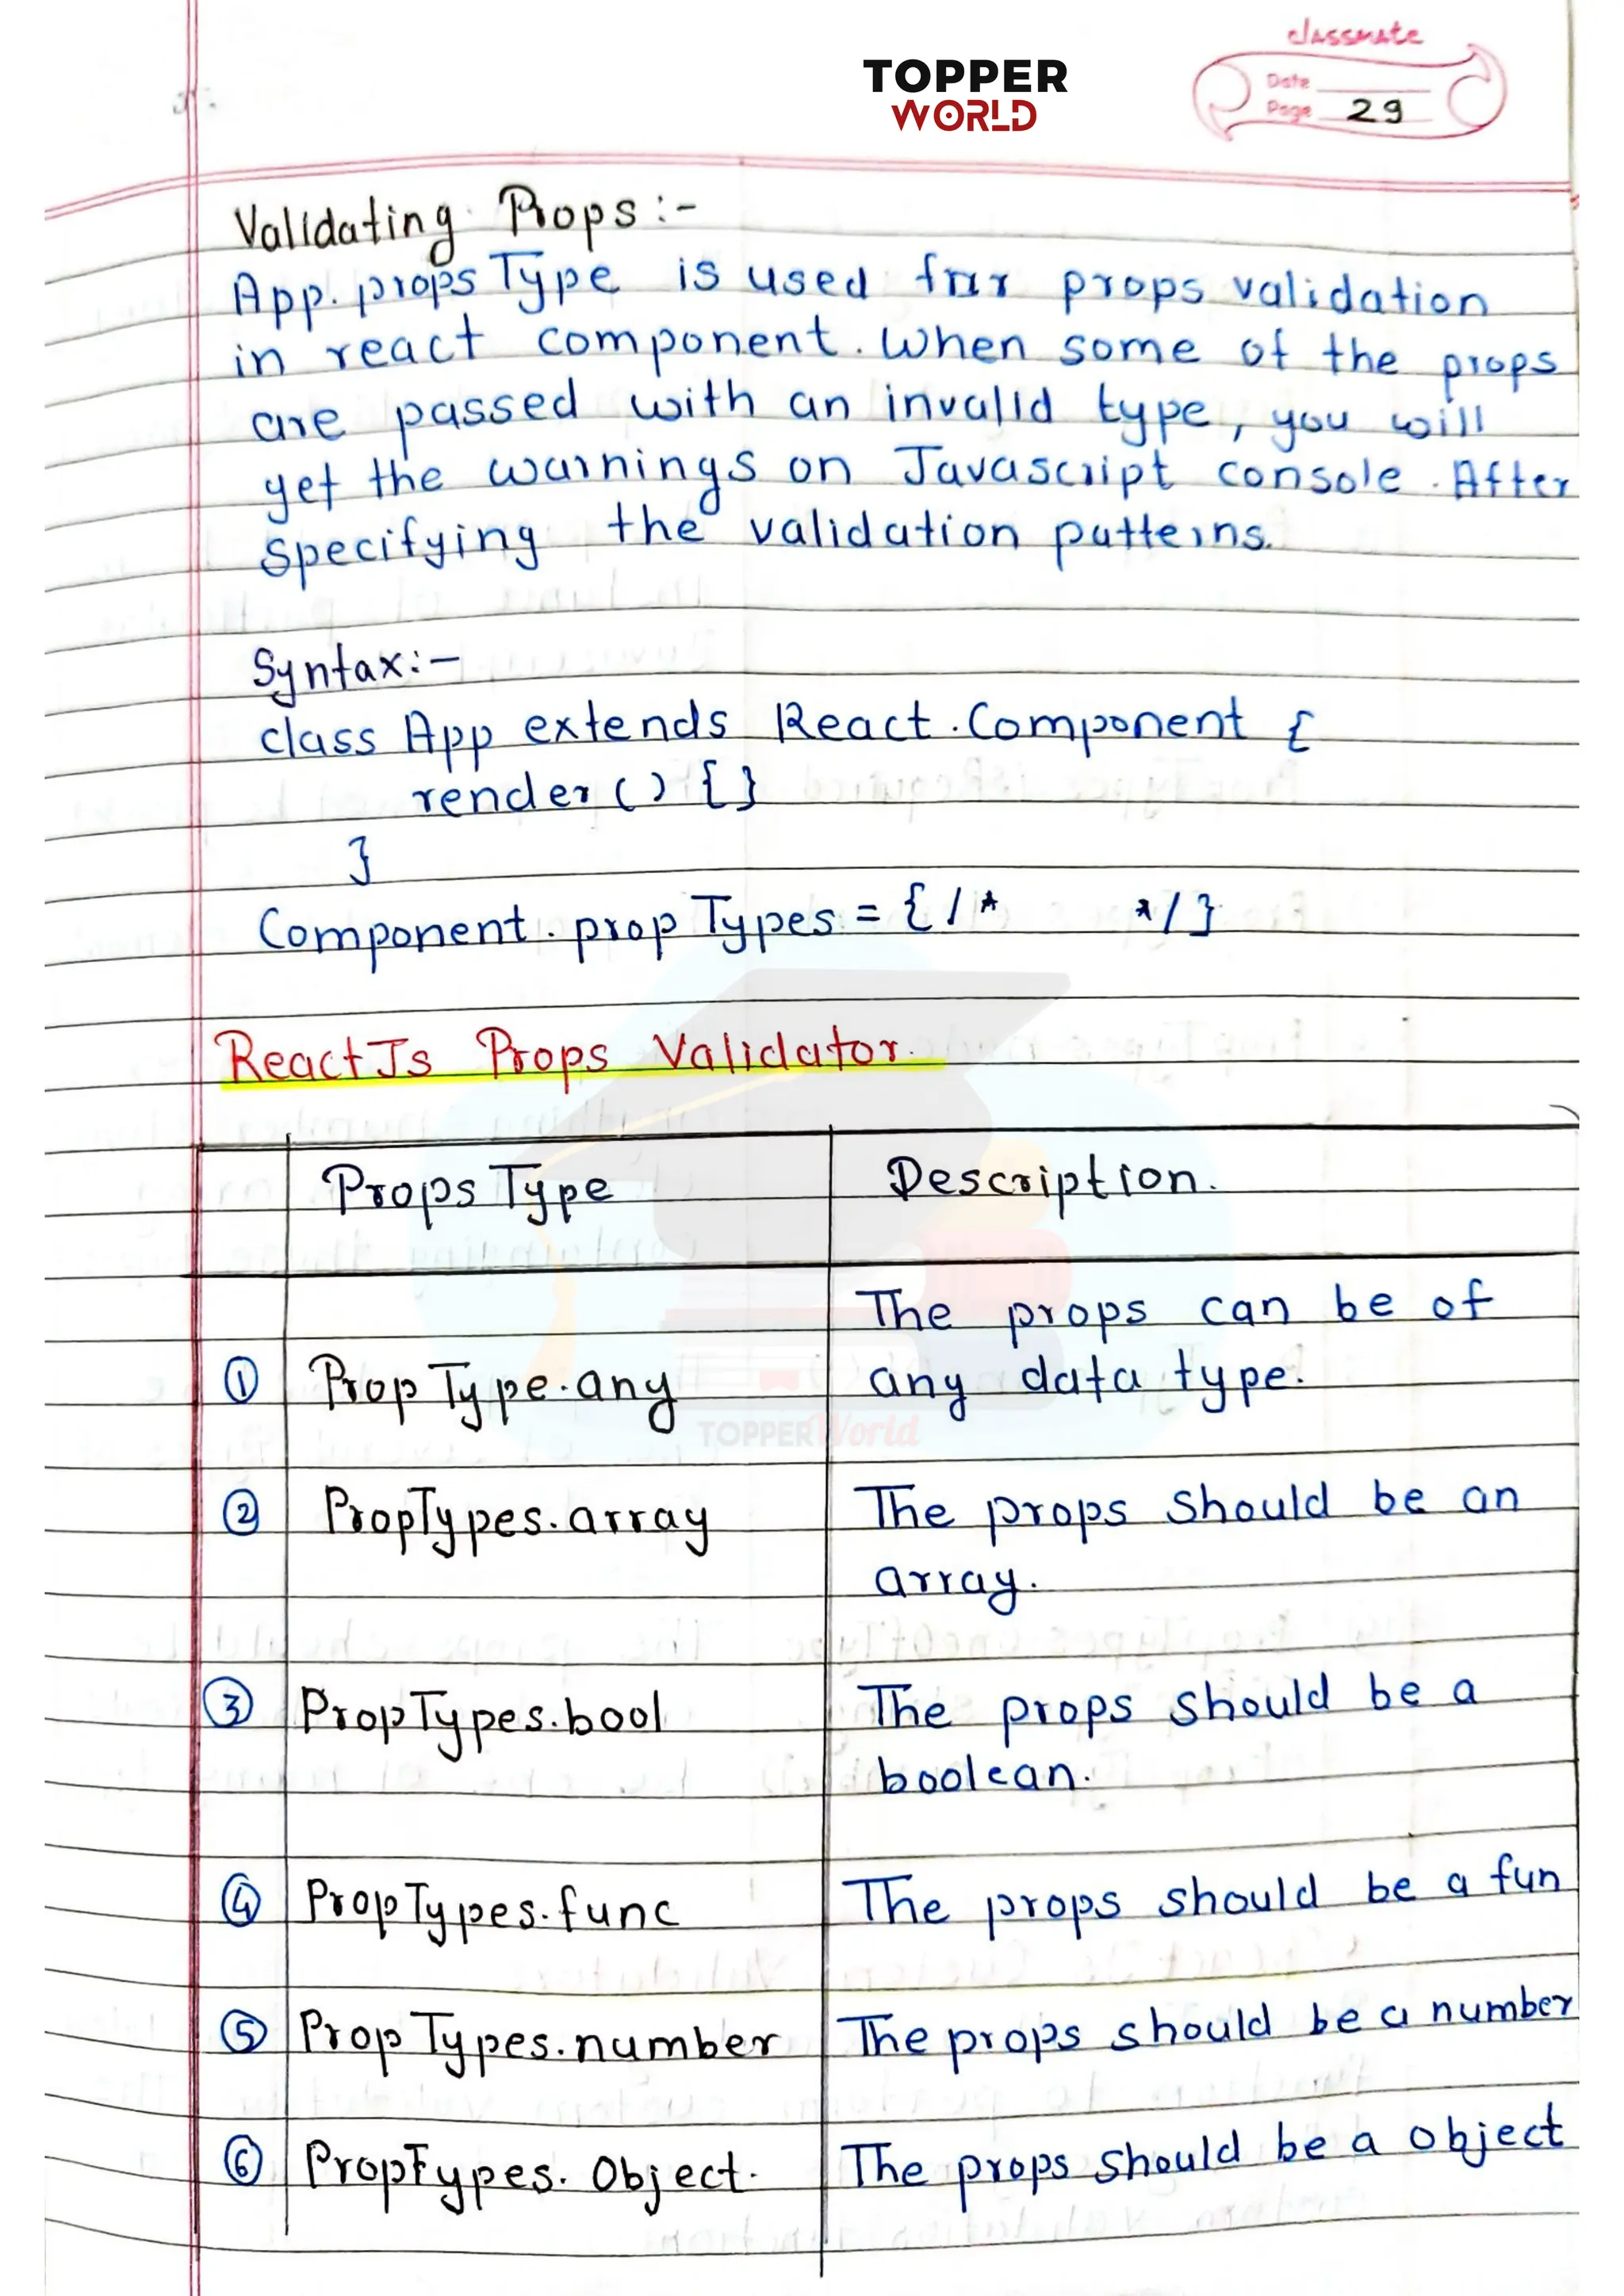 classmate
TOPPER
WORLD
Date
Page 29
Validating Props:-
App.propsType is used for props validation
in react component. When some of the props
are passed with an invalid type, you will
get the warnings on Javascript console. After
specifying the validation patterns.
Syntax:-
class App extends React.Component {
render () { }
}
Component.propTypes = { /* */ }
ReactJs Props Validator.
Props Type Description.
The props can be of
① PropType.any any data type.
TOPPERWorld
② PropTypes.array The props should be an
array.
③ PropTypes.bool The props should be a
boolean.
④ PropTypes.func The props should be a fun
⑤ PropTypes.number The props should be a number
⑥ PropTypes.Object. The props should be a object